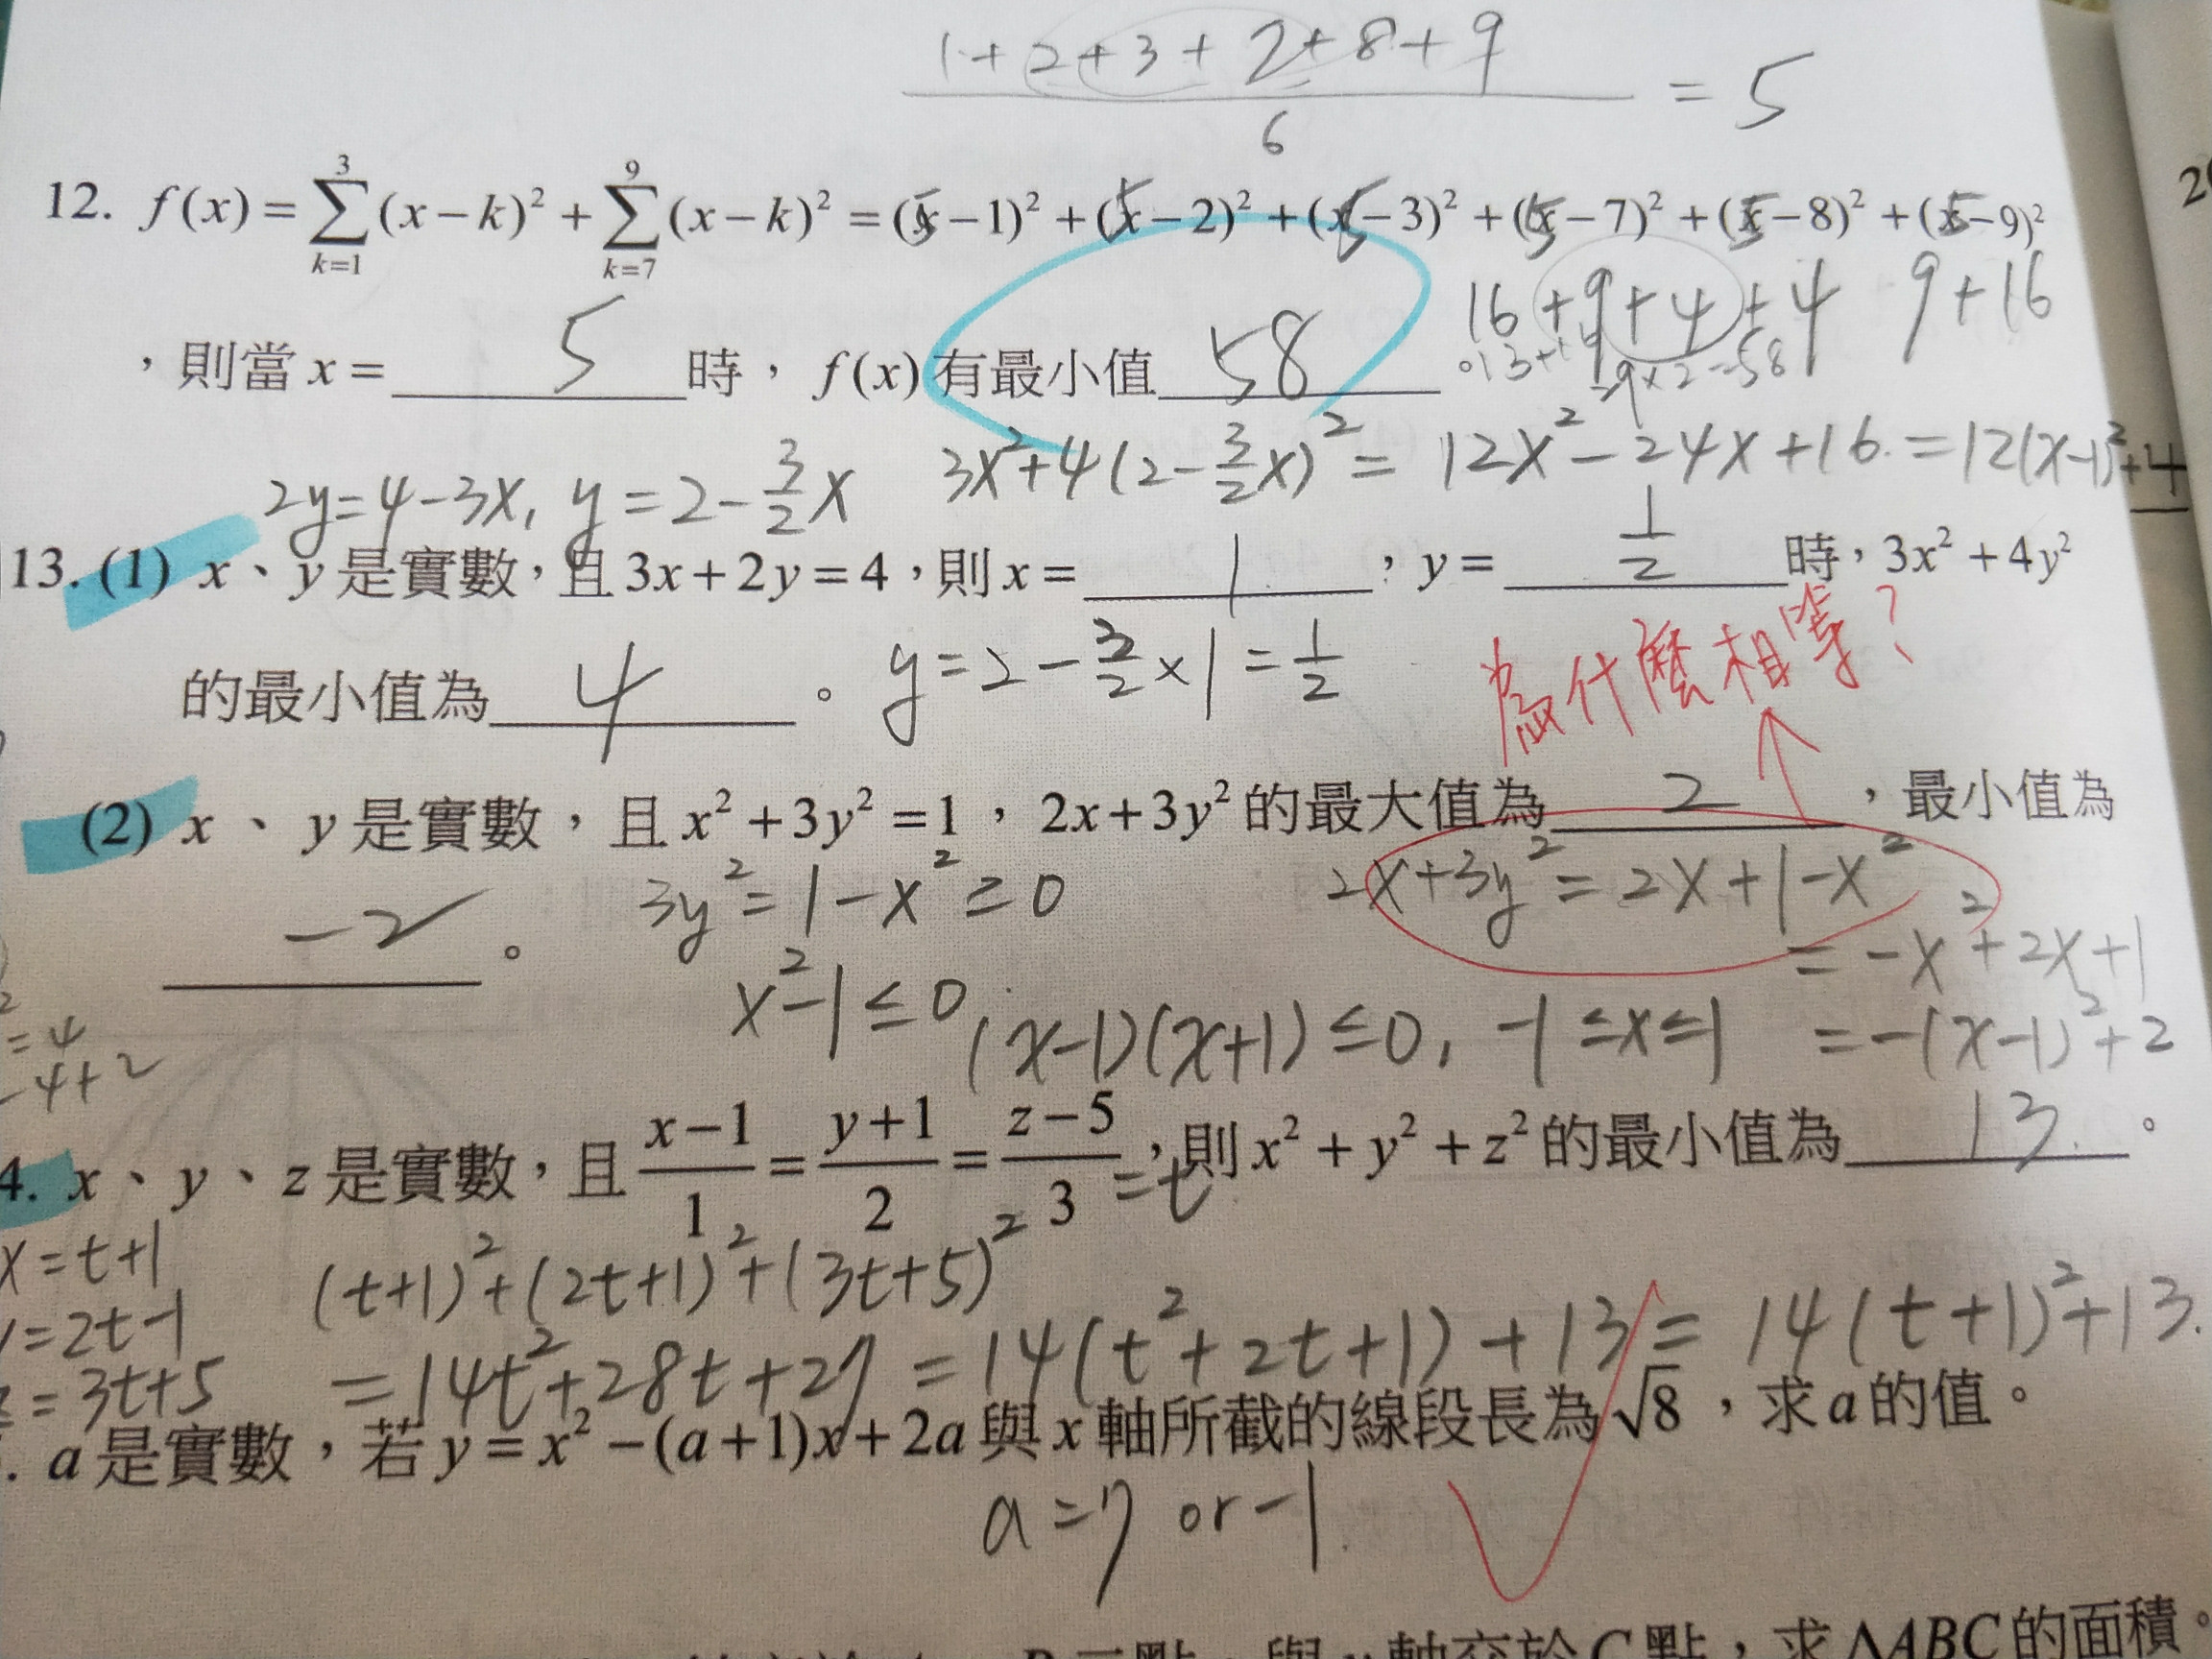 1+2+3+2+8+9
6
= 5
12. f(x) = \sum_{k=1}^{3}(x-k)^2 + \sum_{k=7}^{9}(x-k)^2 = (x-1)^2 + (x-2)^2 + (x-3)^2 + (x-7)^2 + (x-8)^2 + (x-9)^2
5 5 5 5 5 5
16+9+4+4 9+16
，則當 x = 5 時， f(x) 有最小值 58 。
2y=4-3x, y=2-\frac{3}{2}x 3x^2+4(2-\frac{3}{2}x)^2 = 12x^2-24x+16 = 12(x-1)^2+4
13. (1) x、y 是實數，且 3x+2y=4，則 x= 1 ，y= \frac{1}{2} 時，3x^2+4y^2
為什麼相等？
的最小值為 4 。 y=2-\frac{3}{2}×1=\frac{1}{2}
(2) x、y 是實數，且 x^2+3y^2=1，2x+3y^2 的最大值為 2 ，最小值為
-2 。 3y^2=1-x^2≥0 2x+3y^2=2x+1-x^2
= -x^2+2x+1
x^2-1≤0 (x-1)(x+1)≤0, -1≤x≤1 = -(x-1)^2+2
=4
-4+2
4. x、y、z 是實數，且 \frac{x-1}{1} = \frac{y+1}{2} = \frac{z-5}{3} =t，則 x^2+y^2+z^2 的最小值為 13 。
x=t+1 (t+1)^2+(2t+1)^2+(3t+5)^2
y=2t-1
z=3t+5 =14t^2+28t+27 =14(t^2+2t+1)+13 = 14(t+1)^2+13.
. a 是實數，若 y=x^2-(a+1)x+2a 與 x 軸所截的線段長為 √8，求 a 的值。
a=7 or -1
C 點，求 ΔABC 的面積。